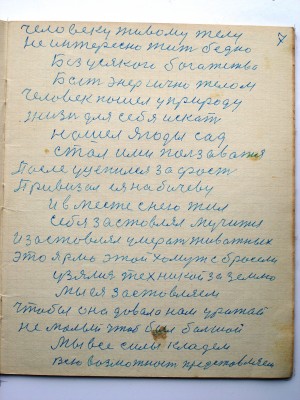 7
человеку живому телу
не интересно жит бедно
Без усякого богатства
Быт энергично телом
Человек пошел у природу
жизн для себя искат
нашел ягоды сад
стал ими ползаватся
После уцепился за
Привизал на бичеву
и вместе с нею жил
себя заставлял мучится
и заставлял умерат животных
это ярмо этой хомут сбросем
узялися техникой за землю
мы ея заставляем
чтобы она довала нам урожай
не малый чтоб был балшой
мы все силы кладем
всю возможност представляем